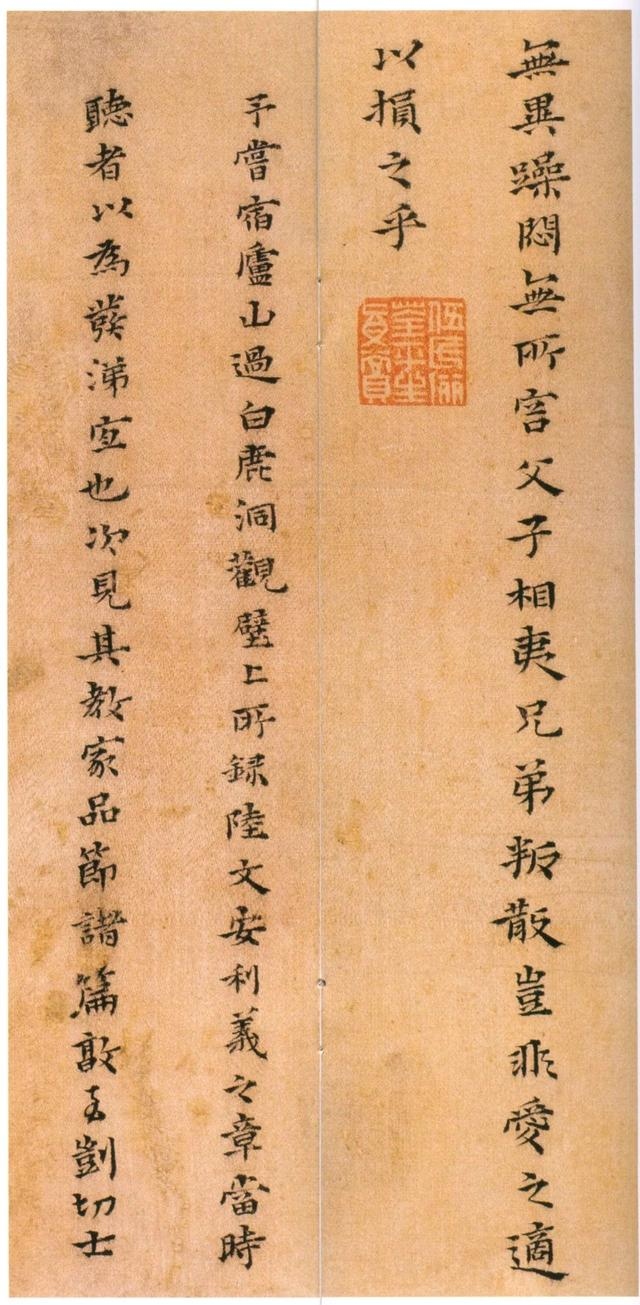 無異躁悶無所言父子相夷兄弟叛散豈非愛之適
以損之乎
予嘗宿廬山過白鹿洞觀壁上所録陸文安利義之章當時
聽者以為發涕宜也次見其教家品節諸篇敦玄剴切士